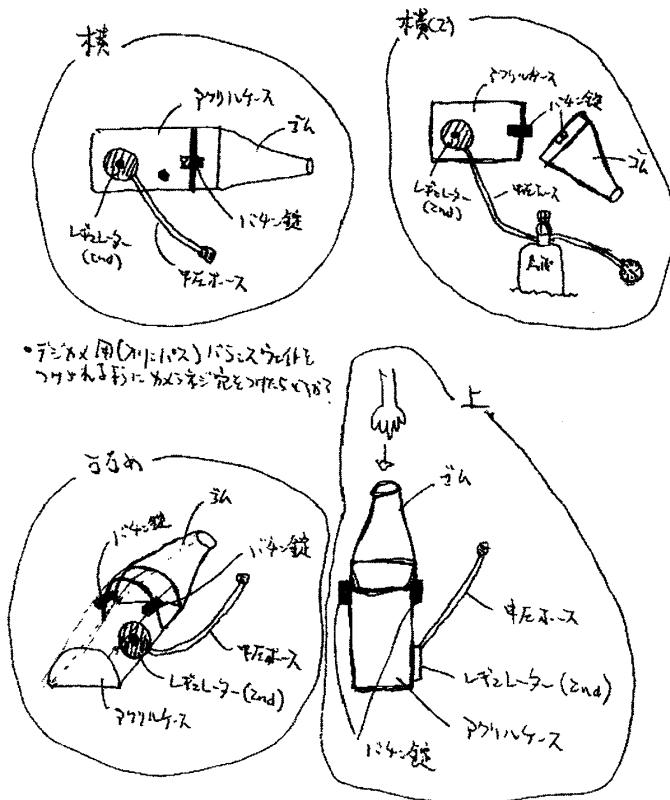 横
アクリルケース
ゴム
レギュレーター
(2nd)
中圧ホース
バチン錠
横(2)
アクリルケース
バチン錠
ゴム
レギュレーター
(2nd)
中圧ホース
・デジカメ用(オリンパス)バランスウェイトを
つけられるようにカメラネジ穴をつけたらどうか?
ななめ
ゴム
バチン錠
バチン錠
中圧ホース
レギュレーター(2nd)
アクリルケース
上
ゴム
中圧ホース
レギュレーター(2nd)
アクリルケース
バチン錠